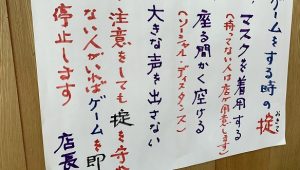 ゲームをする時の掟
おきて
マスクを着用する
(持ってない人は店が用意します)
座る間かく空ける
(ソーシャル・ディスタンス)
大きな声を出さない
注意をしても掟を守
ない人がいればゲームを即
停止します
店長